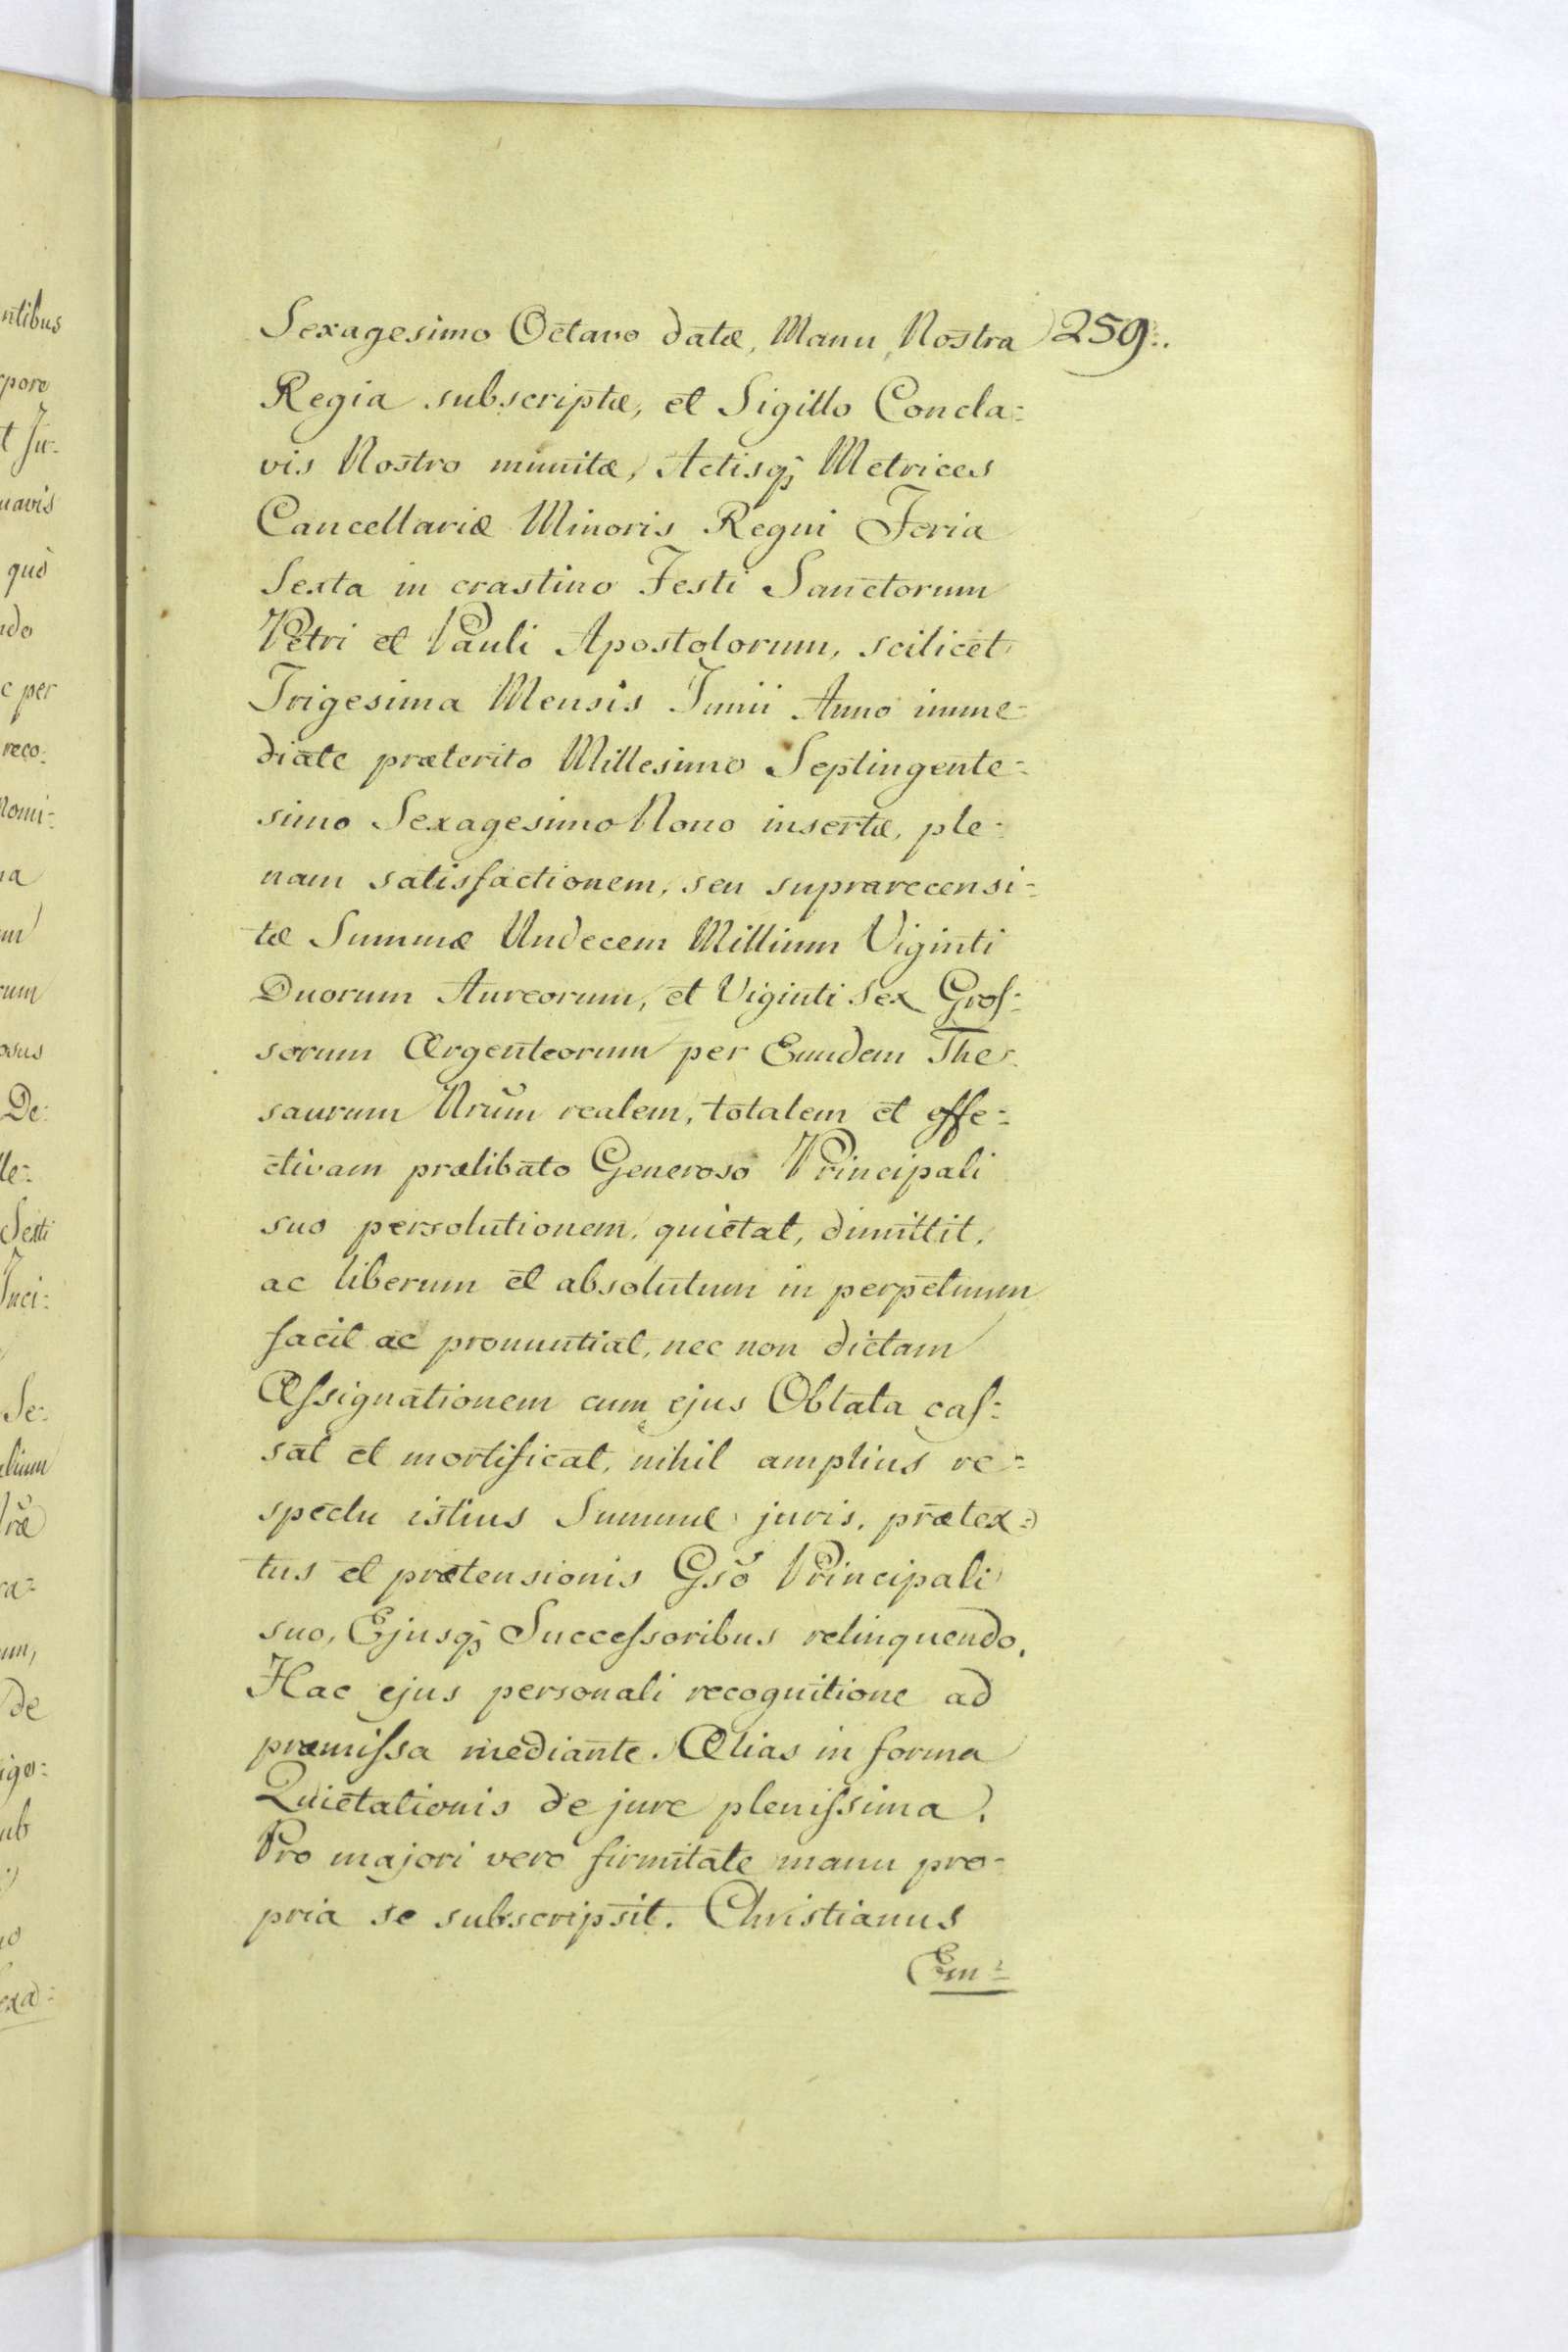 Sexagesimo Octavo datæ, Manu Nostra 259.
Regia subscriptæ, et Sigillo Concla=
vis Nostro munitæ, Actisq3 Metrices
Cancellariæ Minoris Regni Feria
Sexta in crastino Festi Sanctorum
Petri et Pauli Apostolorum, scilicet
Trigesima Mensis Junii Anno imme=
diate præterito Millesimo Septingente=
simo Sexagesimo Nono insertæ, ple=
nam satisfactionem, seu suprarecensi=
tæ Summæ Undecem Millium Viginti
Duorum Aureorum, et Viginti Sex Gros=
sorum Argenteorum per Eundem The=
saurum Nrum realem, totalem et effe=
ctivam prælibato Generoso Principali
suo persolutionem, quietat, dimittit,
ac liberum et absolutum in perpetuum
facit ac pronuntiat, nec non dictam
Assignationem cum ejus Oblata cas=
sat et mortificat, nihil amplius re=
spectu istius Summæ juris, prætex=
tus et prætensionis Gso Principali
suo, Ejusq3 Successoribus relinquendo.
Hac ejus personali recognitione ad
præmissa mediante. Alias in forma
Quietationis de jure plenissima.
Pro majori vero firmitate manu pro=
pria se subscripsit. Christianus
Em=
ntibus
pore
t Ju=
uavis
quo
ndo
c per
reco=
Nomi=
na
um
rum
osus
De=
lle=
Sexti
Inci=
Se=
alium
ræ
ra=
um,
de
igo=
ub
no
exa=